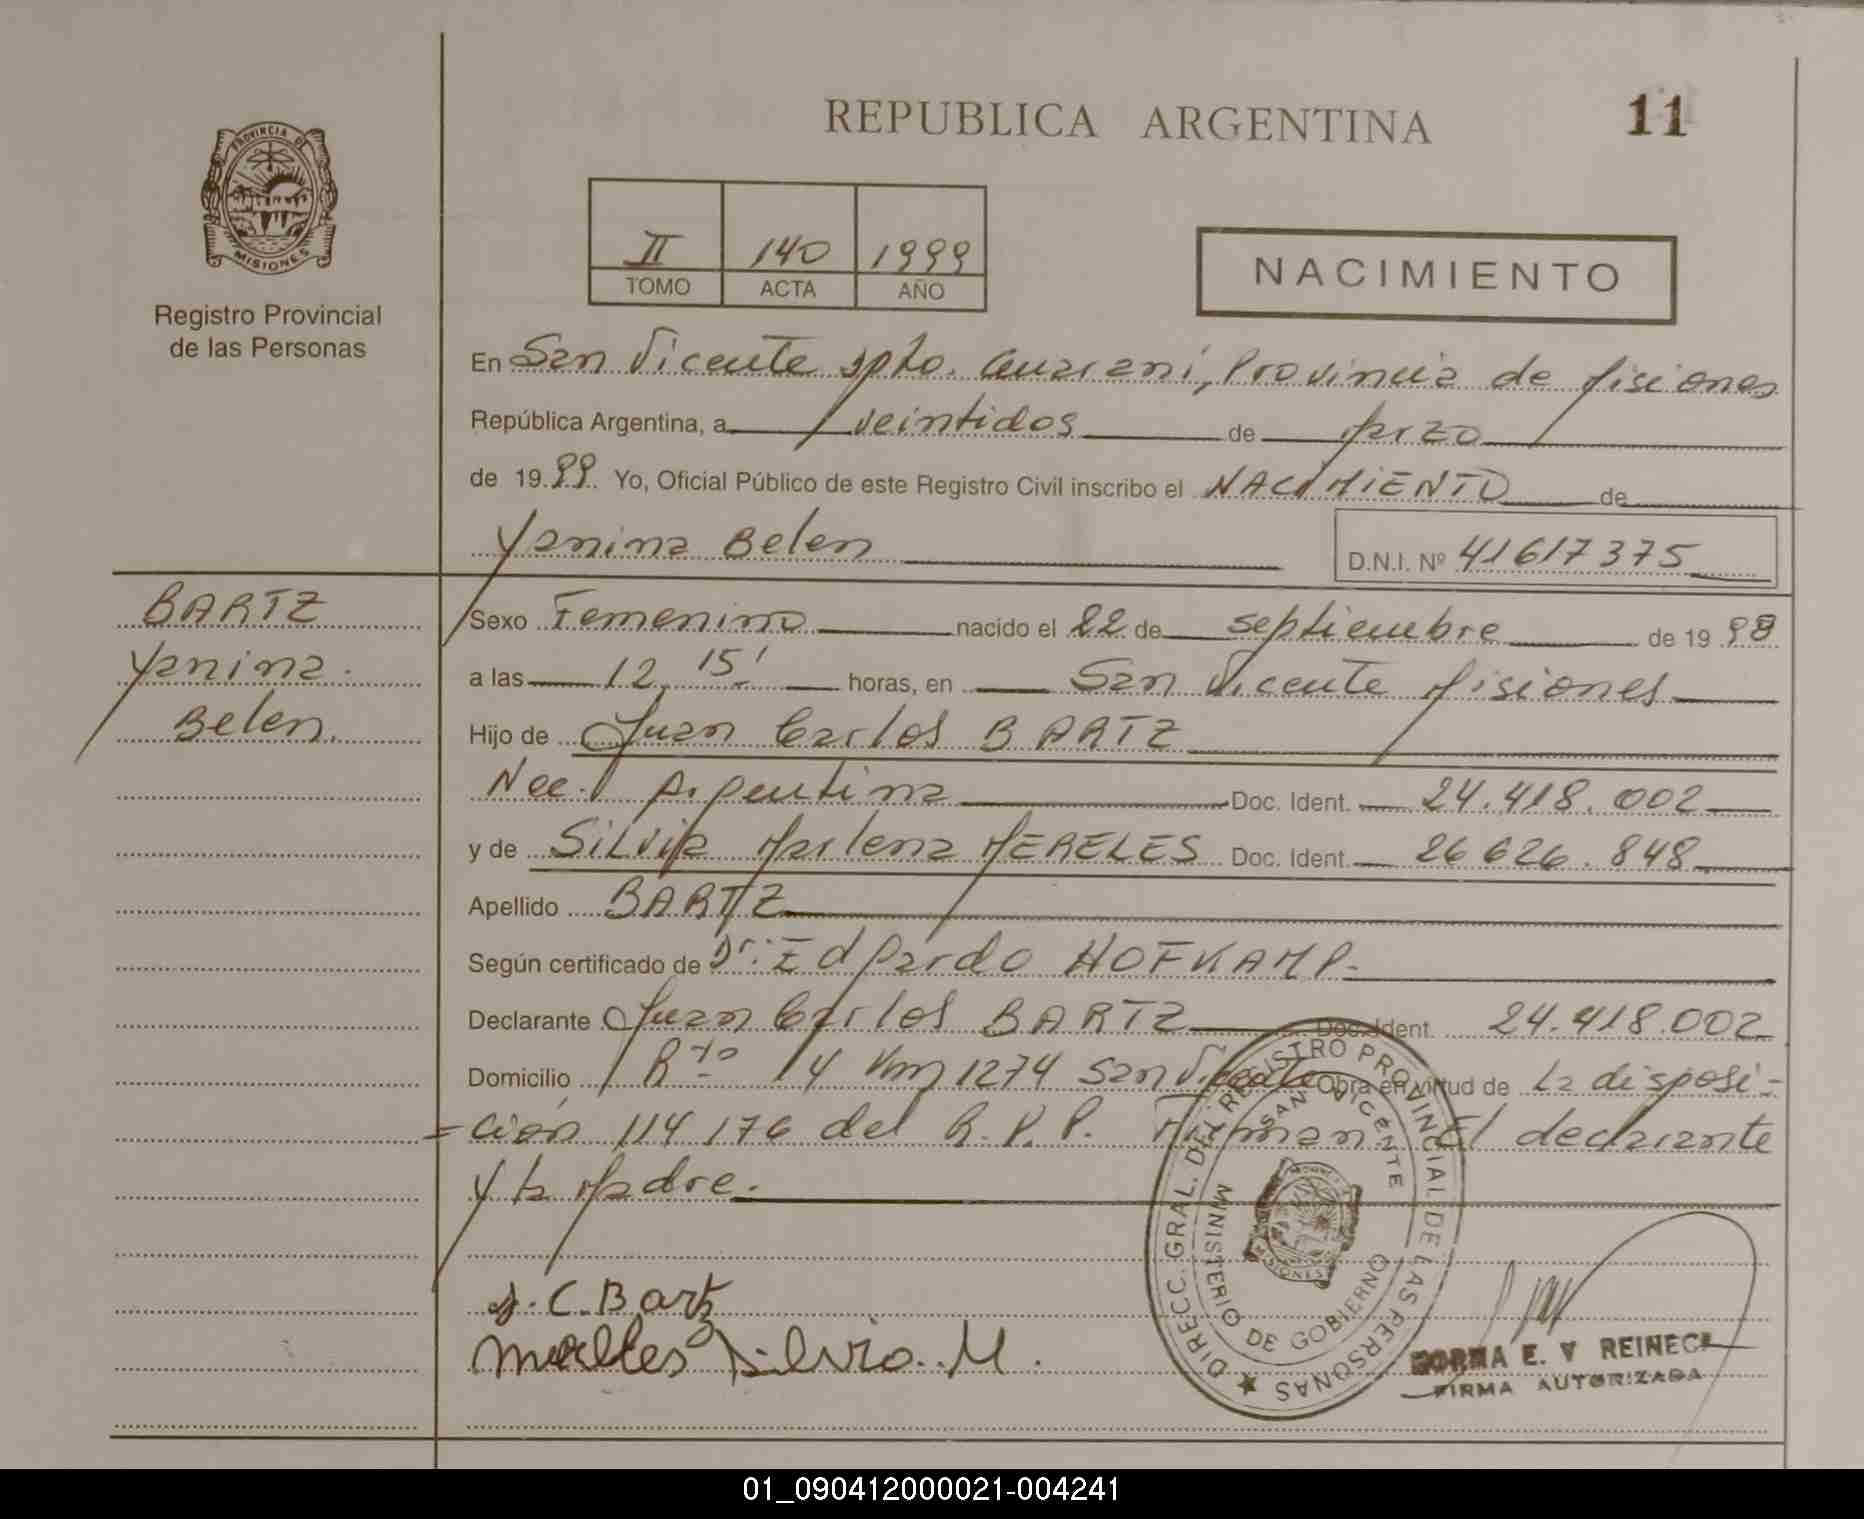 REPUBLICA ARGENTINA
11
PROVINCIA DE
MISIONES
Registro Provincial
de las Personas
II 140 1999
TOMO ACTA AÑO
NACIMIENTO
En San Vicente Dpto. Guaraní, Provincia de Misiones
República Argentina, a veintidos de Marzo
de 1999 Yo, Oficial Público de este Registro Civil inscribo el NACIMIENTO de
Yanina Belen D.N.I. Nº 41617375
BARTZ
Yanina
Belen.
Sexo Femenino nacido el 22 de septiembre de 1998
a las 12 15' horas, en San Vicente Misiones
Hijo de Juan Carlos BARTZ
Nac. Argentina Doc. Ident. 24.418.002
y de Silvia Marlena MERELES Doc. Ident. 26626.848
Apellido BARTZ
Según certificado de Dr. Edgardo HOFKAMP.
Declarante Juan Carlos BARTZ Doc. Ident. 24.418.002
Domicilio Rta 14 Km 1274 San Vicente Obra en virtud de La disposi-
=ción 114/76 del R.P.P. Firman El declarante
y la Madre.
J.C. Bartz
Mereles Silvia. M.
DIRECC. GRAL. DEL REGISTRO PROVINCIAL DE LAS PERSONAS
SAN VICENTE
MINISTERIO DE GOBIERNO
MISIONES
NORMA E. V REINECK
FIRMA AUTORIZADA
01_090412000021-004241